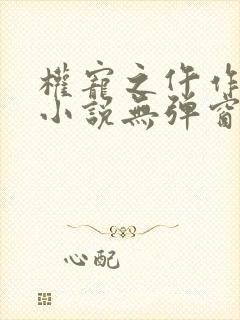 權寵之仵作
小說無彈窗
心配